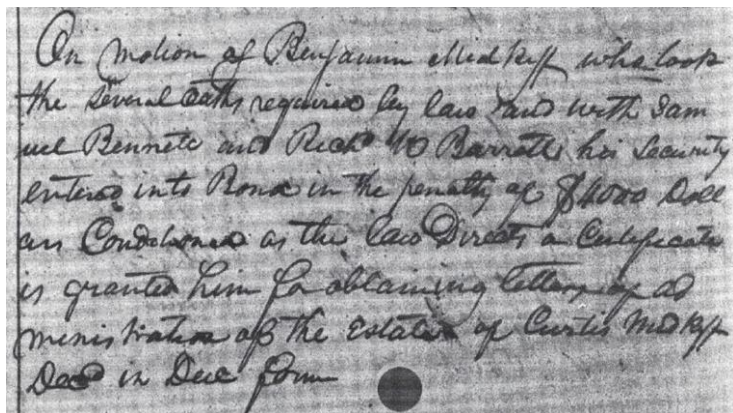 On Motion of Benjamin Medkiff who took
the several oaths required by law and with Sam
uel Bennett and Richd W Barrett his Security
entered into Bond in the penalty of $4000 Doll
ars Conditioned as the law Directs a Certificate
is granted him for obtaining letters of ad
ministration of the Estate of Curtis Medkiff
Decd in Due form